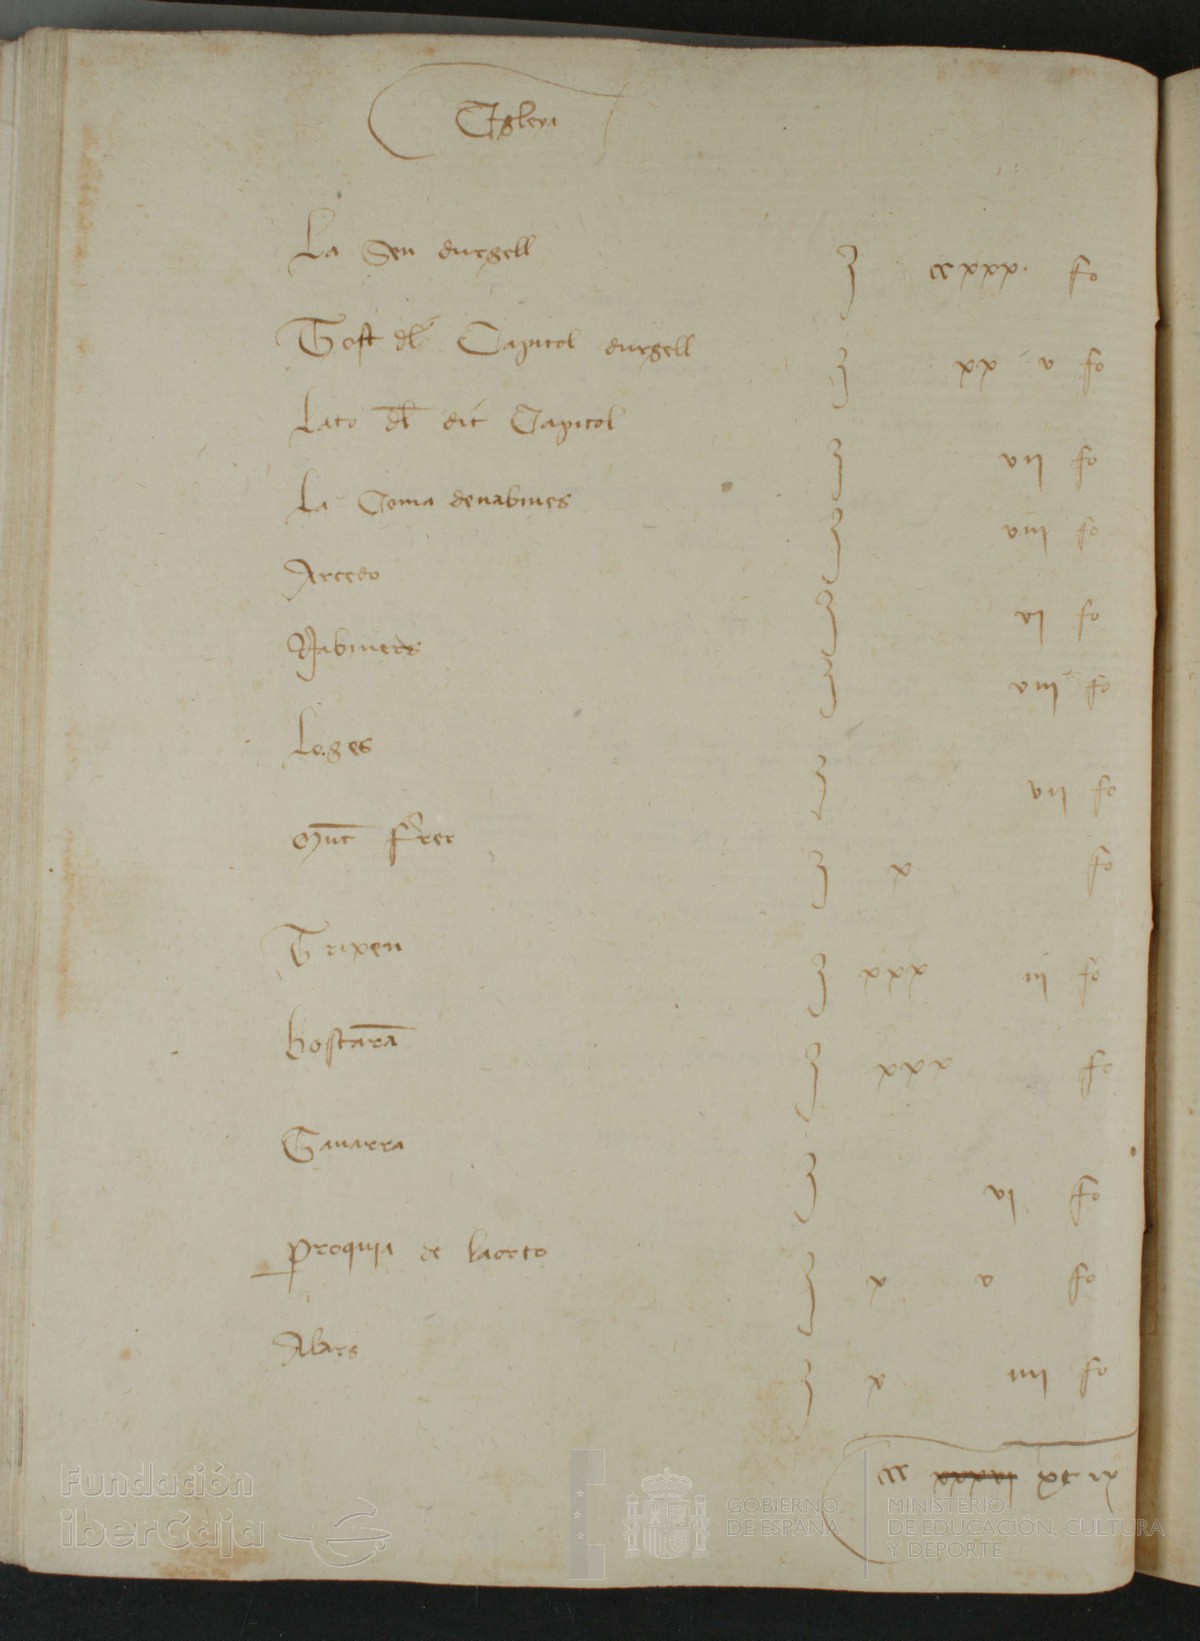 Esgleya
La Seu durgell ccxxx. fo
Tost dl Capitol durgell xx v fo
Lato dl dit Capitol vii fo
La Coma denabines viii fo
Arcedo vi fo
Nabiners viii fo
Loges vii fo
Munt frer x fo
Trixeu xxx iii fo
hostara xxx fo
Gauarra vi fo
Proquia de laorto x v fo
Alars x iiii fo
cc
Fundación
iberCaja
GOBIERNO
DE ESPAÑA
MINISTERIO
DE EDUCACIÓN, CULTURA
Y DEPORTE